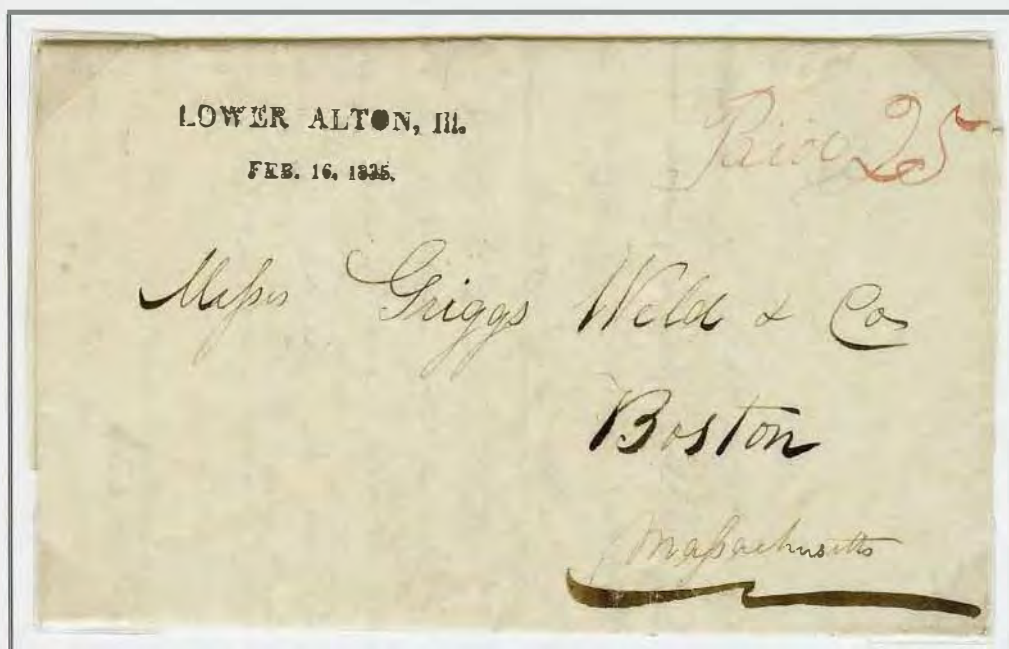 LOWER ALTON, Ill.
FEB. 16, 1835.
25
Messrs Griggs Weld & Co
Boston
Massachusetts